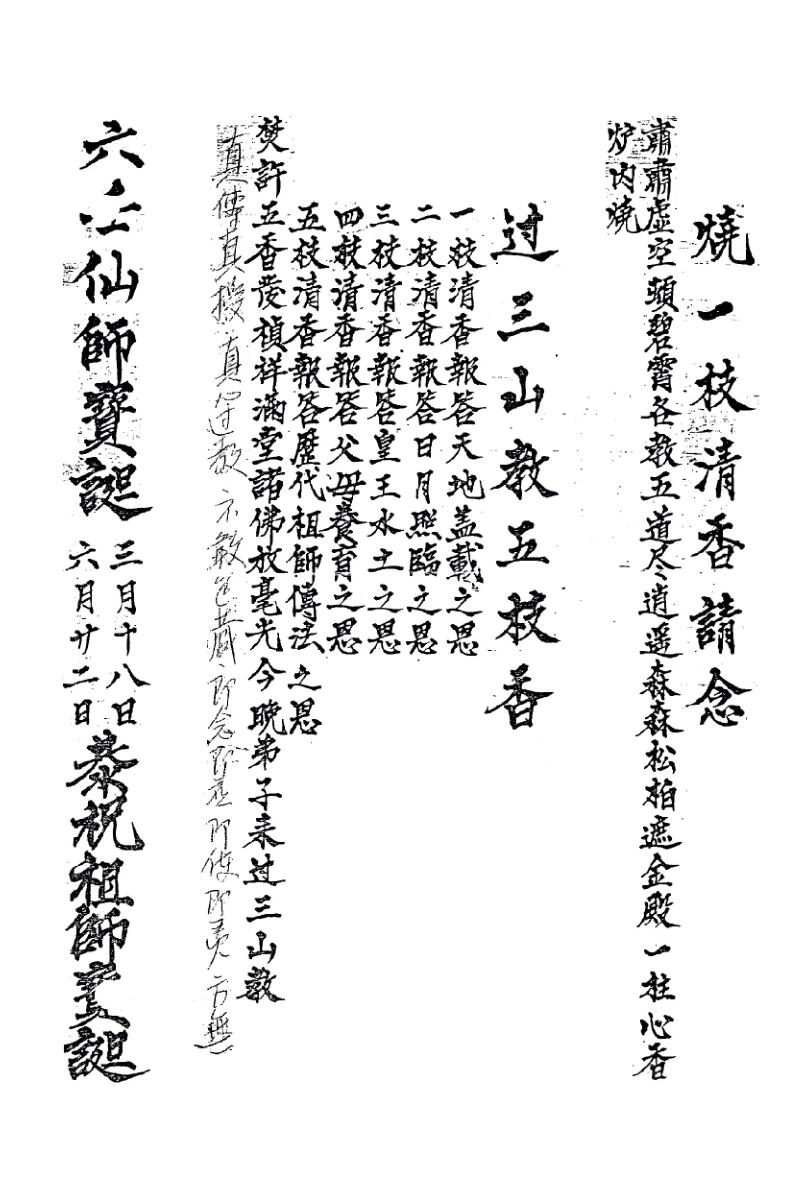 燒一枝清香請念
肅肅虛空頭碧霄各教五道尽逍遥森森松柏遮金殿一柱心香
炉内燒
过三山教五枝香
一枝清香報答天地盖載之恩
二枝清香報答日月照臨之恩
三枝清香報答皇王水土之恩
四枝清香報答父母養育之恩
五枝清香報答歷代祖師傳法之恩
焚許五香發禎祥滿堂諸佛放毫光今晚弟子来过三山教
真傳真授真心过教不敢
六仙師寶誕
三月十八日
六月廿二日
恭祝祖師寶誕